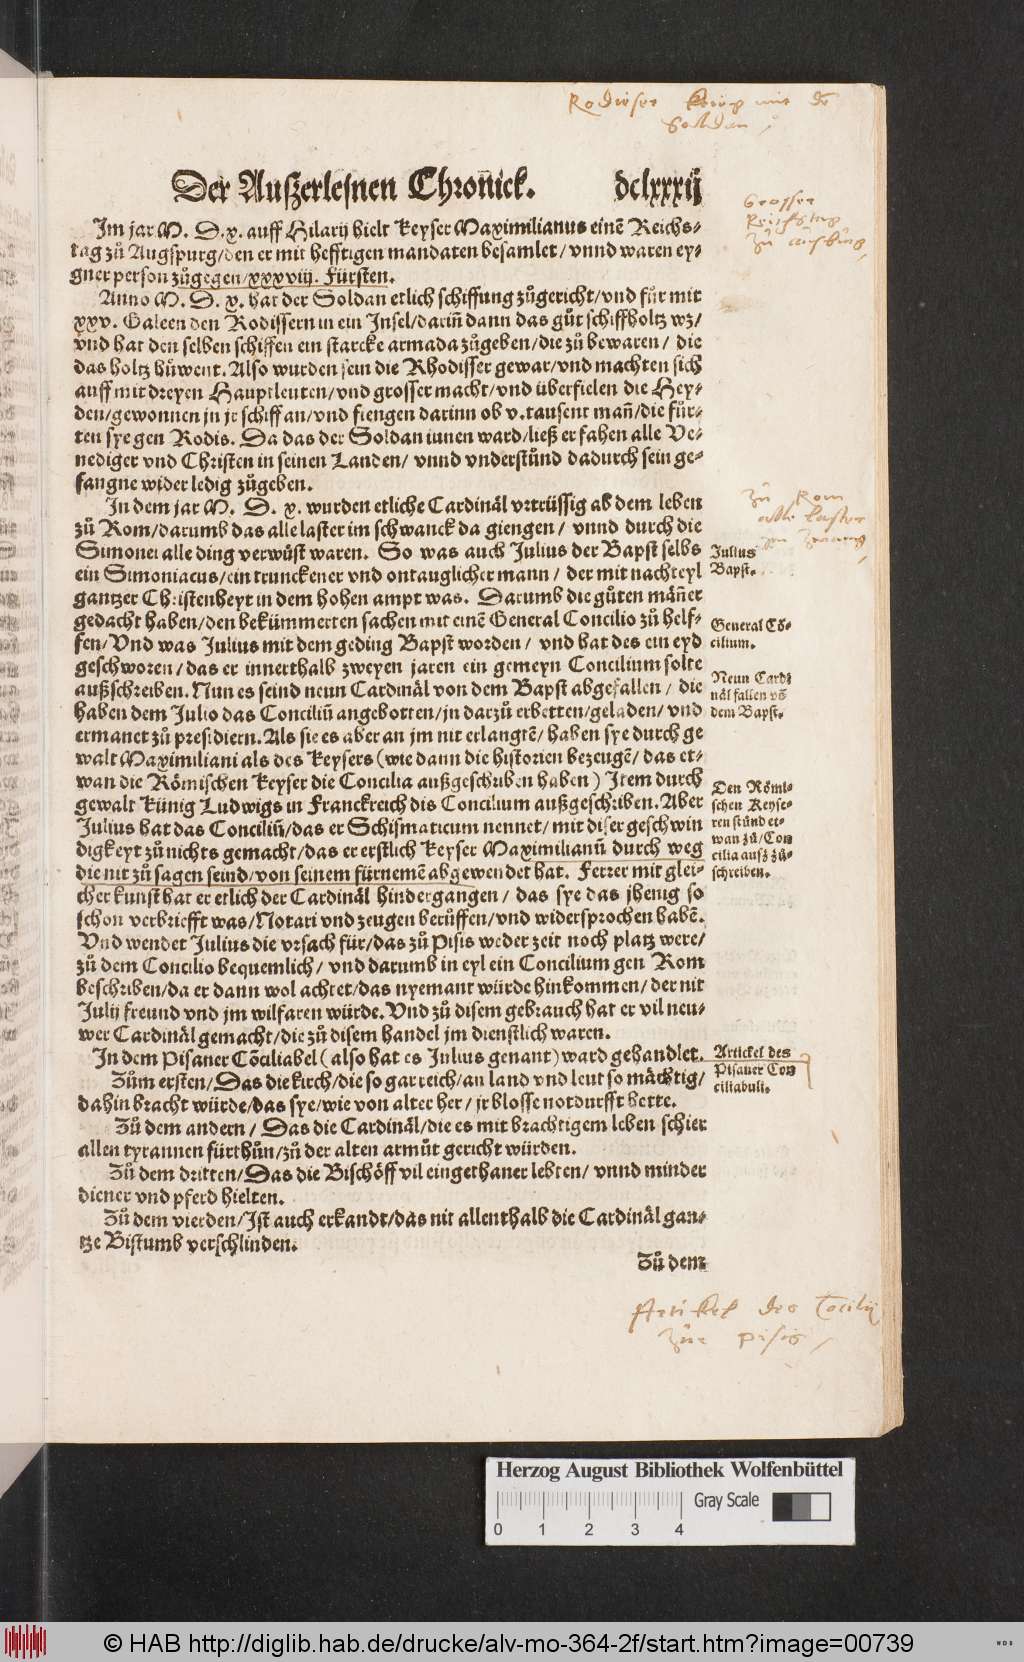 Rodieser krieg mit dē
Soldan /
Der Außerlesnen Chronick. dclxxxij
Grosser
Reichstag
Zů
Im jar M. D.x. auff Hilarij hielt Keyser Maximilianus einẽ Reichs-
tag zů Augspurg/den er mit hefftigen mandaten besamlet/vnnd waren ey-
gner person zůgegen/xxxviij. Fürsten.
Anno M. D. x. hat der Soldan etlich schiffung zůgericht/vnd fůr mit
xxv. Galeen den Rodissern in ein Insel/dariñ dann das gůt schiffholtz wz/
vnd hat den selben schiffen ein starcke armada zůgeben/die zů bewaren/ die
das holtz hůwent. Also wurden sein die Rhodisser gewar/vnd machten sich
auff mit dreyen Hauptleuten/vnd grosser macht/vnd überfielen die Hey-
den/gewonnen jn jr schiff an/vnd fiengen darinn ob v.tausent mañ/die fůr-
ten sye gen Rodis. Da das der Soldan innen ward/ließ er fahen alle Ve-
nediger vnd Christen in seinen Landen/ vnnd vnderstůnd dadurch sein ge-
fangne wider ledig zůgeben.
In dem jar M. D. x. wurden etliche Cardinäl vrtrüssig ab dem leben
zů Rom/darumb das alle laster im schwanck da giengen/ vnnd durch die
Simonei alle ding verwüst waren. So was auch Julius der Bapst selbs
ein Simoniacus/ein trunckener vnd ontauglicher mann/ der mit nachteyl
gantzer Christenheyt in dem hohen ampt was. Darumb die gůten mäñer
gedacht haben/den bekümmerten sachen mit einẽ General Concilio zů helf-
fen/Vnd was Julius mit dem geding Bapst worden/ vnd hat des ein eyd
geschworen/das er innerthalb zweyen jaren ein gemeyn Concilium solte
außschreiben. Nun es seind neun Cardinäl von dem Bapst abgefallen/ die
haben dem Julio das Conciliũ angebotten/jn darzů erbetten/geladen/ vnd
ermanet zů presidiern. Als sie es aber an jm nit erlangtẽ/ haben sye durch ge
walt Maximiliani als des Keysers (wie dann die historien bezeugẽ/ das et-
wan die Römischen Keyser die Concilia außgeschriben haben) Item durch
gewalt Künig Ludwigs in Franckreich dis Concilium außgeschriben. Aber
Julius hat das Conciliũ/das er Schismaticum nennet/ mit diser geschwin
digkeyt zů nichts gemacht/das er erstlich Keyser Maximilianũ durch weg
die nit zů sagen seind/von seinem fürnemẽ abgewendet hat. Ferrer mit glei-
cher kunst hat er etlich der Cardinäl hindergangen/ das sye das jhenig so
schon verbriefft was/Notari vnd zeugen berůffen/vnd widersprochen habẽ.
Vnd wendet Julius die vrsach für/das zů Pisis weder zeit noch platz were/
zů dem Concilio bequemlich/ vnd darumb in eyl ein Concilium gen Rom
beschriben/da er dann wol achtet/das nyemant würde hinkommen/der nit
Julij freund vnd jm wilfaren würde. Vnd zů disem gebrauch hat er vil neu-
wer Cardinäl gemacht/die zů disem handel jm dienstlich waren.
In dem Pisaner Cõciliabel (also hat es Julius genant) ward gehandlet.
Zům ersten/Das die kirch/die so gar reich/an land vnd leut so mächtig/
dahin bracht würde/das sye/wie von alter her/ jr blosse notdurfft hette.
Zů dem andern/ Das die Cardinäl/die es mit brachtigem leben schier
allen tyrannen fürthůn/zů der alten armůt gericht würden.
Zů dem dritten/Das die Bischöff vil eingethaner lebten/ vnnd minder
diener vnd pferd hielten.
Zů dem vierden/Ist auch erkandt/das nit allenthalb die Cardinäl gan-
tze Bistumb verschlinden.
Zů dem
Zů Rom
alle laster
Julius
Bapst.
General Cõ-
cilium.
Neun Cardi
näl fallen võ
dem Bapst.
Den Römi-
schen Keyse-
ren stůnd et-
wan zů/Con
cilia ausz zů-
schreiben.
Artickel des
Pisaner Con
ciliabuli.
Artikel des Cocilij
Zůe pisis /
Herzog August Bibliothek Wolfenbüttel
Gray Scale
0 1 2 3 4
© HAB http://diglib.hab.de/drucke/alv-mo-364-2f/start.htm?image=00739